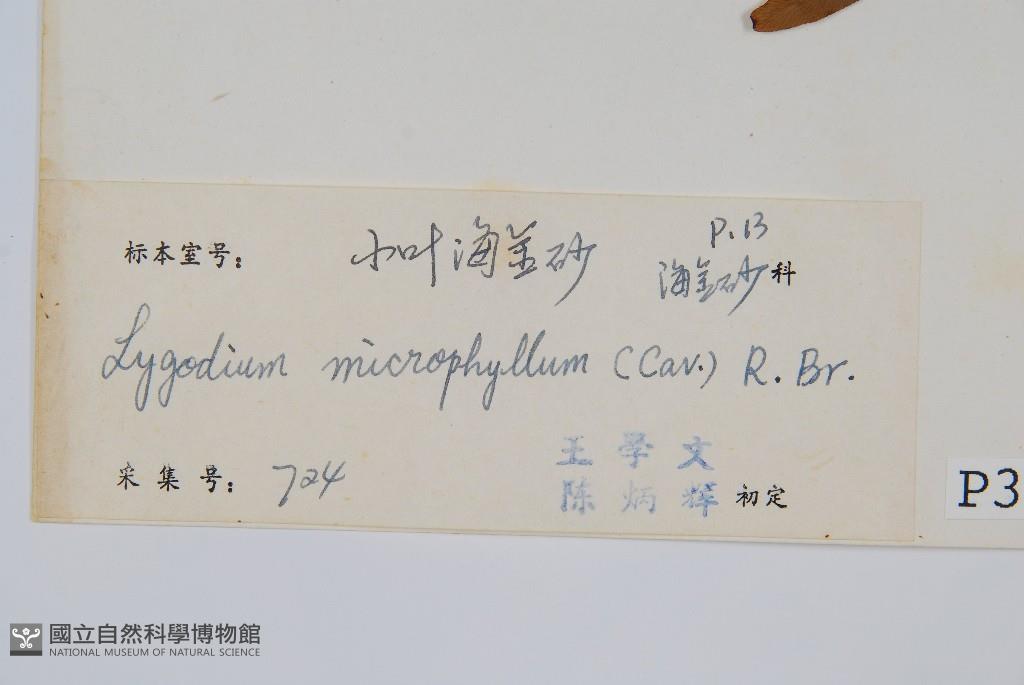 P.13
标本室号： 小叶海金砂 海金砂科
Lygodium microphyllum (Cav.) R. Br.
王学文
采集号： 724 陈炳辉 初定
P3
國立自然科學博物館
NATIONAL MUSEUM OF NATURAL SCIENCE